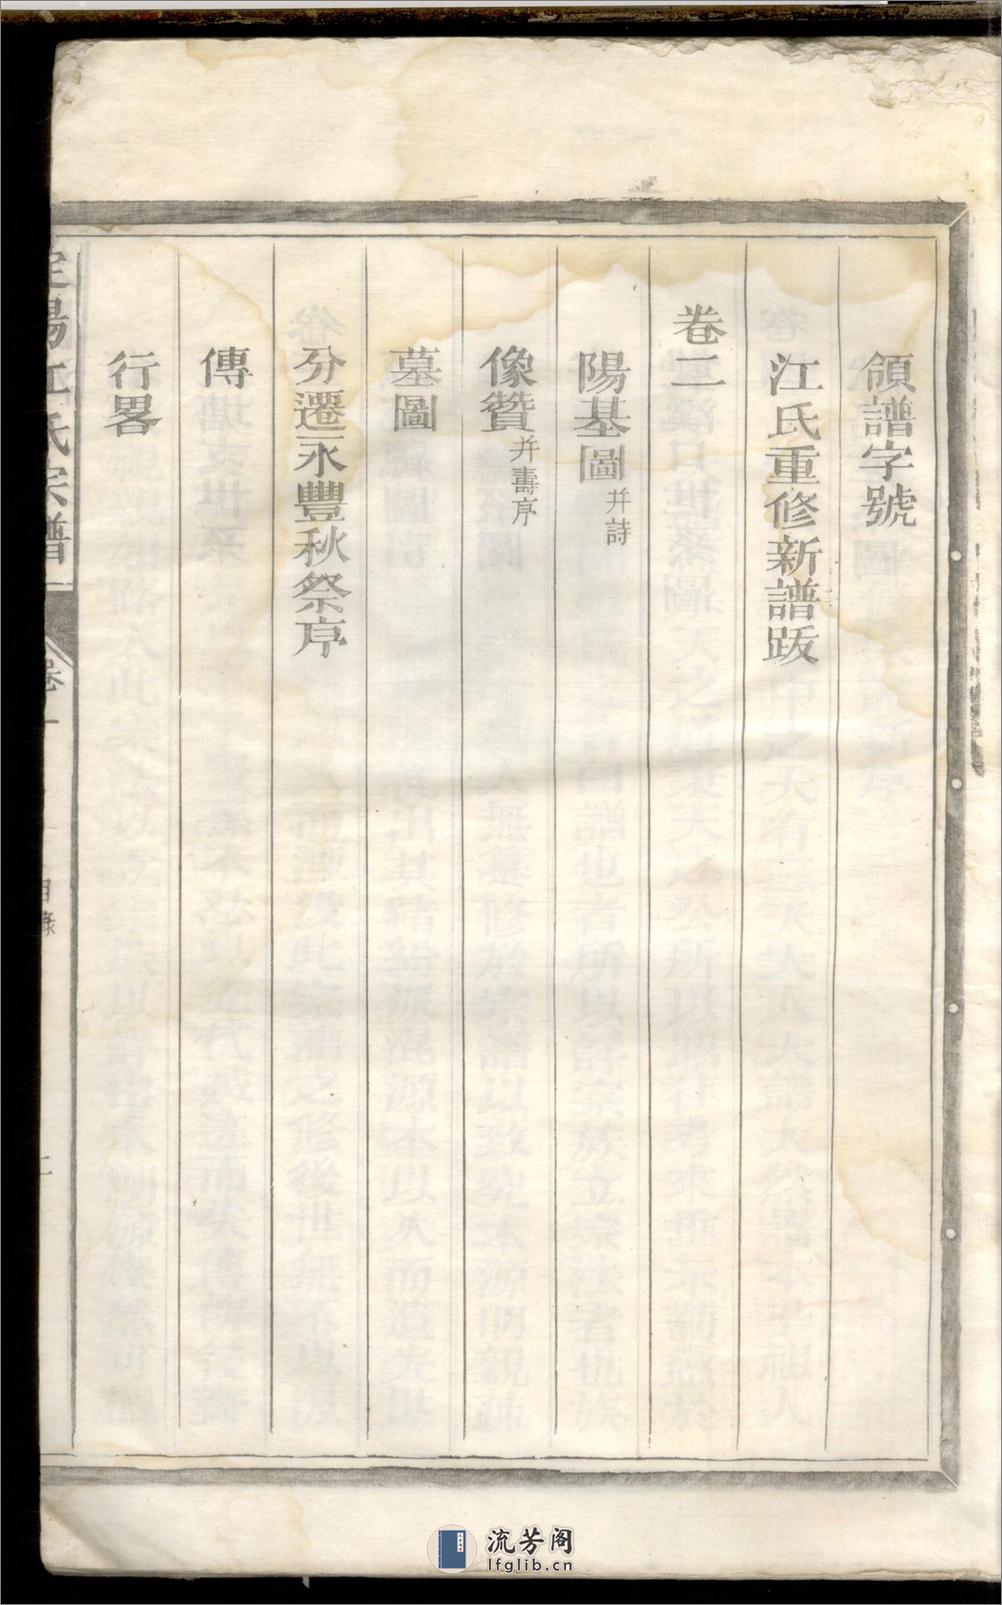 領譜字號
江氏重修新譜跋
卷二
陽基圖并詩
像贊并壽序
墓圖
分遷永豐秋祭序
傳
行畧
陽江氏宗譜
卷一
目錄
二
流芳阁
lfglib.cn